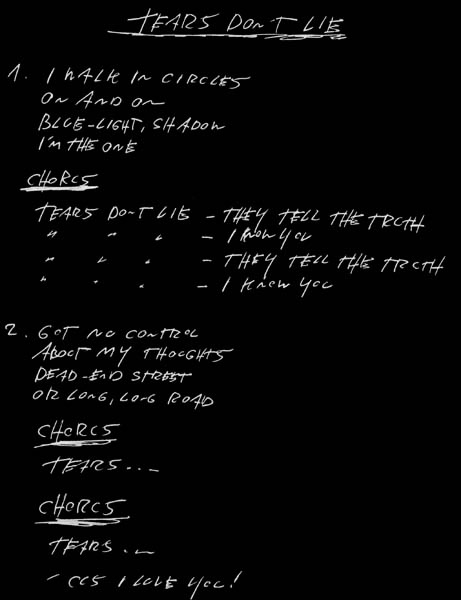 TEARS DON'T LIE
1. I WALK IN CIRCLES
ON AND ON
BLUE-LIGHT, SHADOW
I'M THE ONE
CHORUS
TEARS DON'T LIE - THEY TELL THE TRUTH
" " " - I KNOW YOU
" " " - THEY TELL THE TRUTH
" " " - I KNOW YOU
2. GOT NO CONTROL
ABOUT MY THOUGHTS
DEAD-END STREET
OR LONG, LONG ROAD
CHORUS
TEARS...
CHORUS
TEARS...
I LOVE YOU!